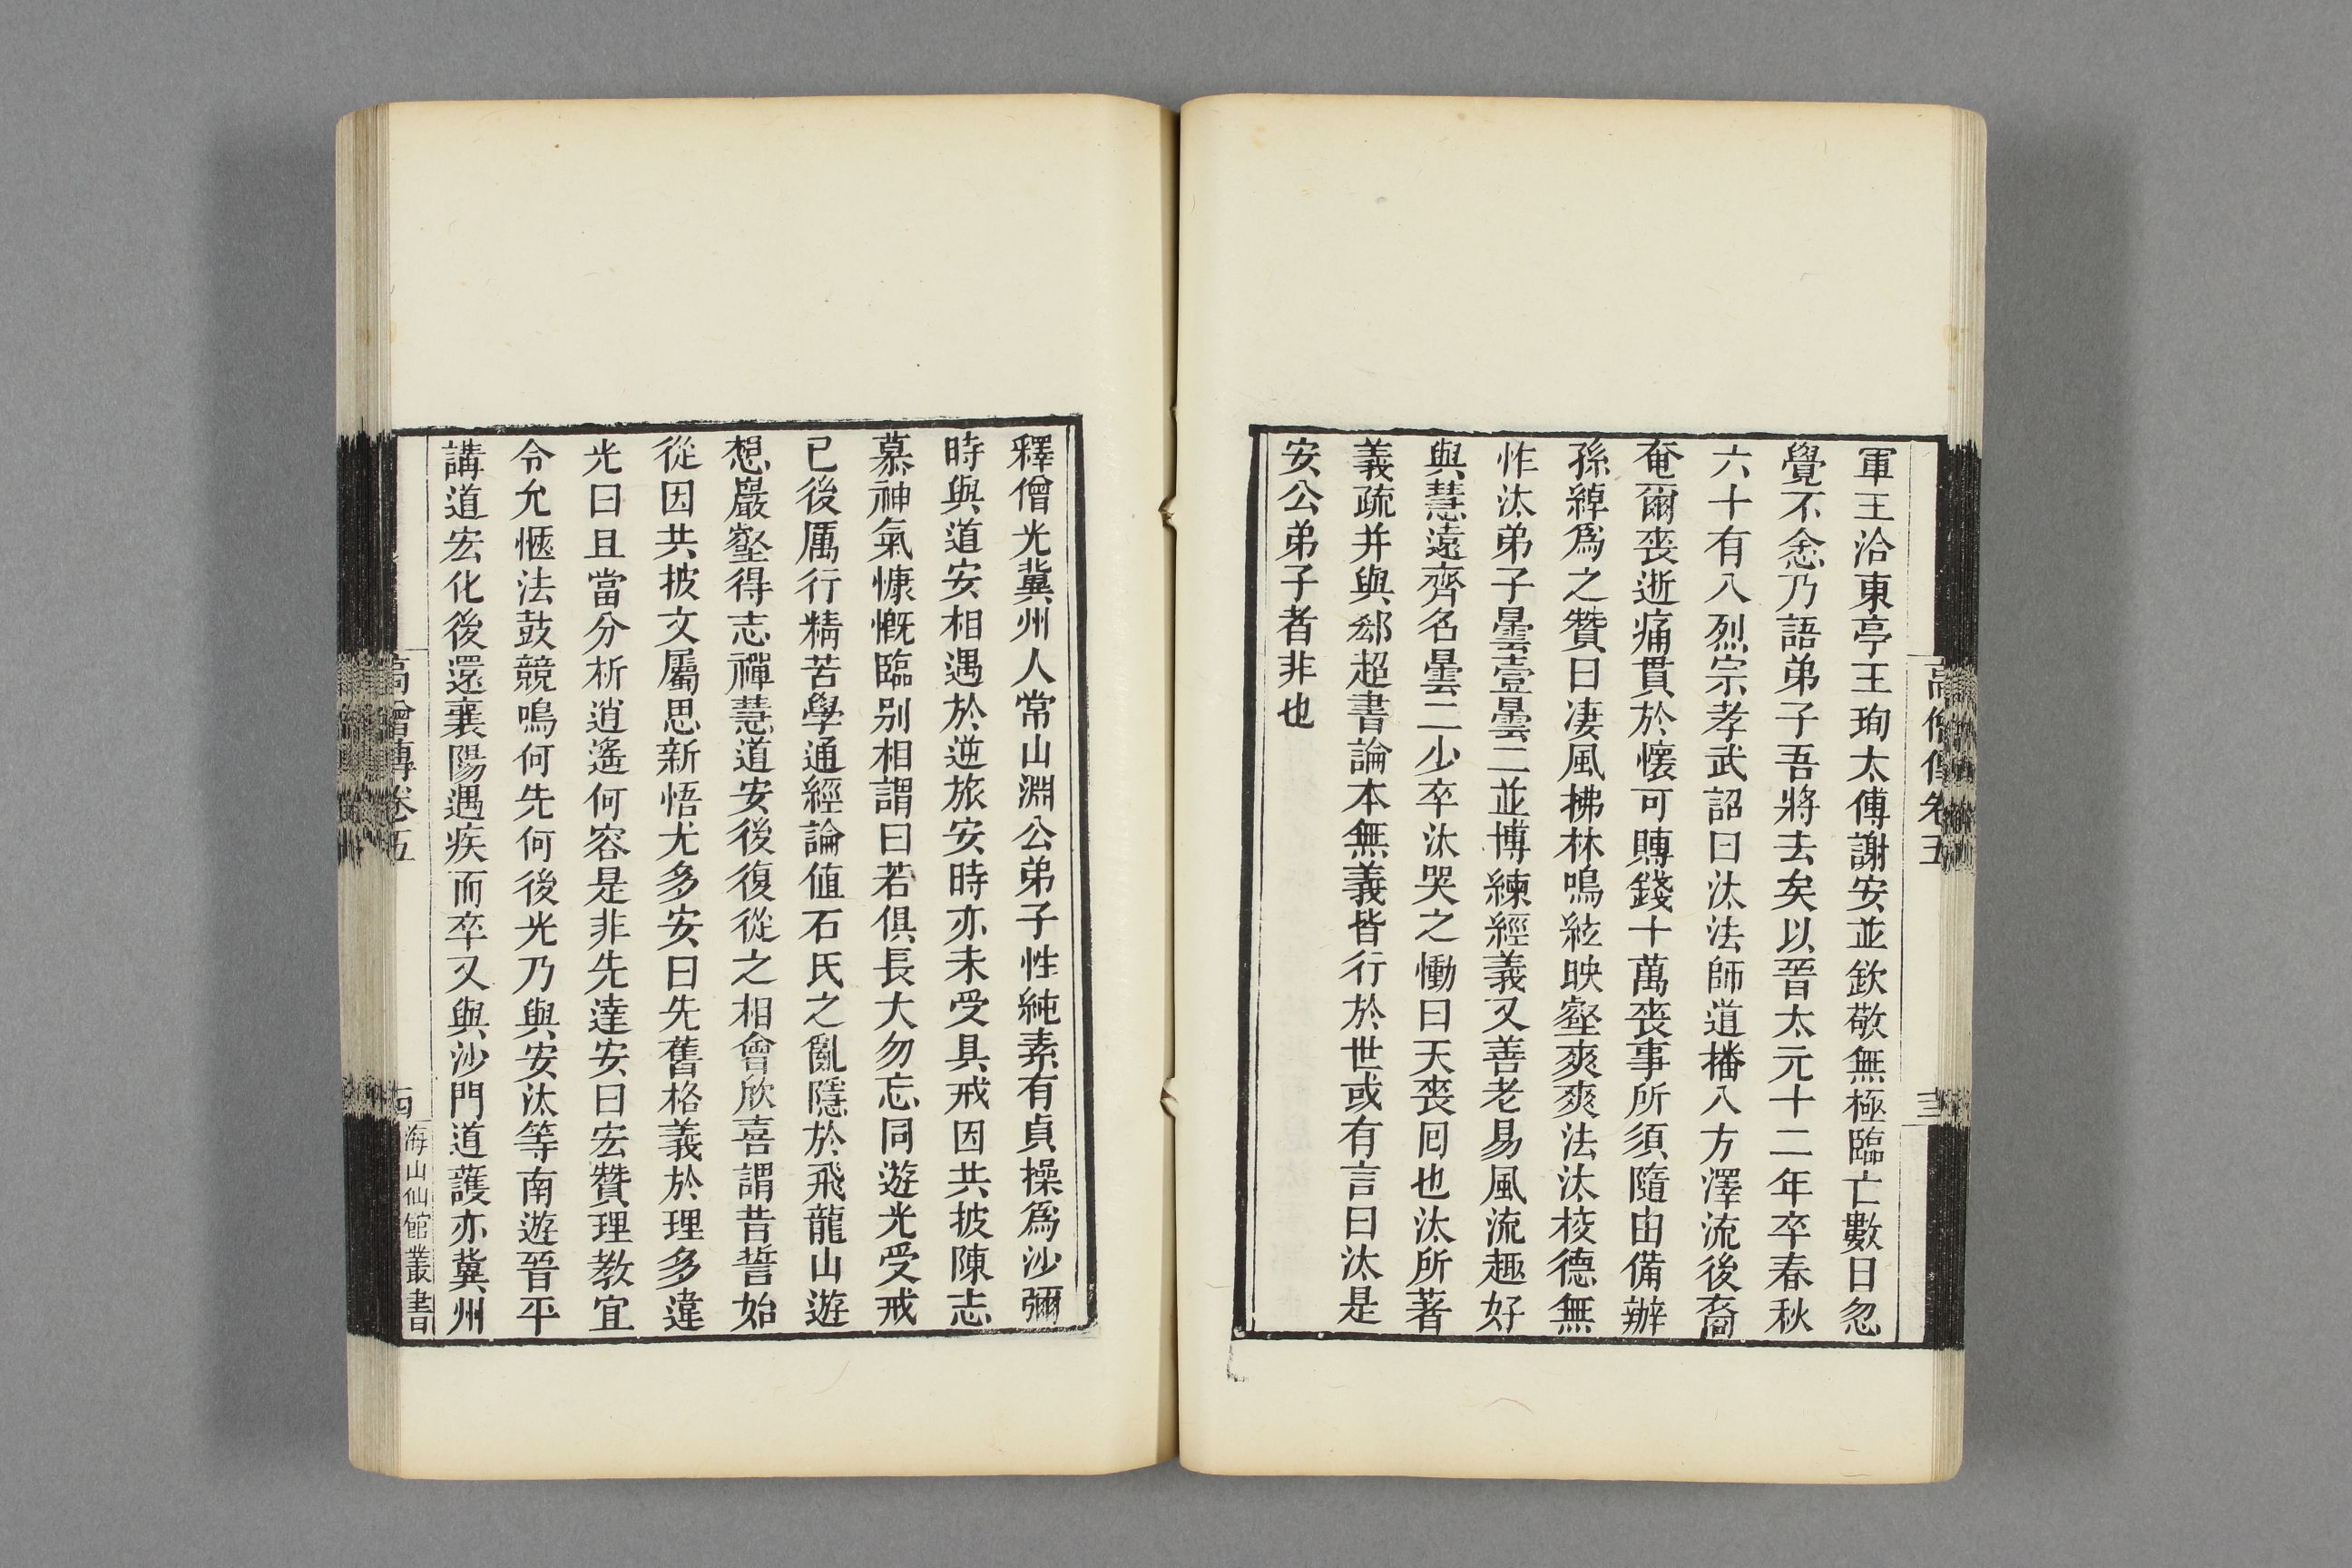 高僧傳卷五
軍王洽東亭王珣太傅謝安並欽敬無極臨亡數日忽
覺不悆乃語弟子吾將去矣以晉太元十二年卒春秋
六十有八烈宗孝武詔曰汰法師道播八方澤流後裔
奄爾喪逝痛貫於懷可賻錢十萬喪事所須隨由備辦
孫綽爲之贊曰淒風拂林鳴絃映壑爽爽法汰校德無
怍汰弟子曇壹曇二並博練經義又善老易風流趣好
與慧遠齊名曇二少卒汰哭之慟曰天喪囘也汰所著
義疏并與郄超書論本無義皆行於世或有言曰汰是
安公弟子者非也
釋僧光冀州人常山淵公弟子性純素有貞操爲沙彌
時與道安相遇於逆旅安時亦未受具戒因共披陳志
慕神氣慷慨臨别相謂曰若俱長大勿忘同遊光受戒
已後厲行精苦學通經論值石氏之亂隱於飛龍山遊
想巖壑得志禪慧道安後復從之相會欣喜謂昔誓始
從因共披文屬思新悟尤多安曰先舊格義於理多違
光曰且當分析逍遙何容是非先達安曰宏贊理教宜
令允愜法鼓競鳴何先何後光乃與安汰等南遊晉平
講道宏化後還襄陽遇疾而卒又與沙門道護亦冀州
高僧傳卷五
四
海山仙館叢書